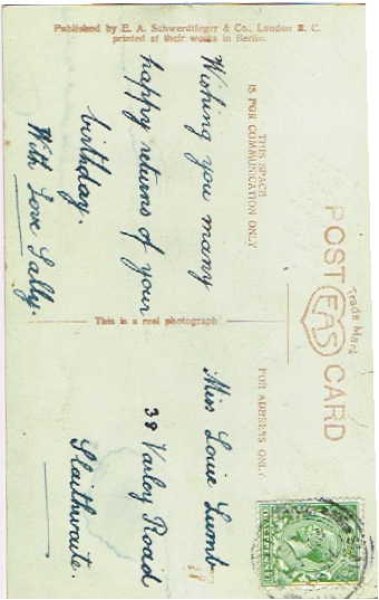 POST CARD
Trade Mark
EAS
THIS SPACE
IS FOR COMMUNICATION ONLY
FOR ADDRESS ONLY
Wishing you many
happy returns of your
birthday.
With Love Sally.
Miss Louie Lumb
38 Varley Road
Slaithwaite.
This is a real photograph
Published by E. A. Schwerdtfeger & Co., London E. C.
printed at their works in Berlin.